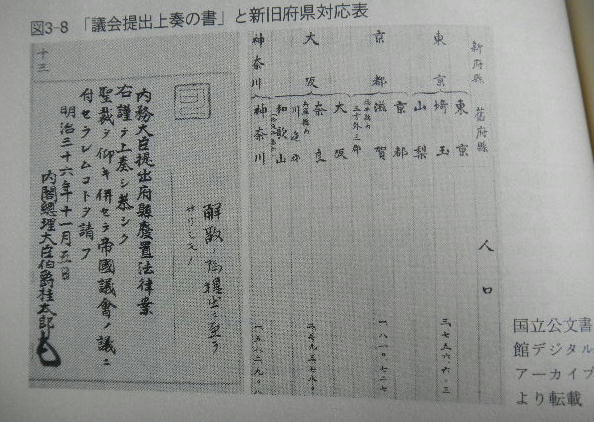 図3-8 「議会提出上奏の書」と新旧府県対応表
十三
内務大臣提出府縣廢置法律案
右謹テ上奏シ恭シク
聖裁ヲ仰キ併セテ帝國議會ノ議ニ
付セラレムコトヲ請フ
明治三十六年十一月
内閣總理大臣伯爵桂太郎
解散ノ為提出ニ至ラ
サリシモノ
新府縣
舊府縣
人口
東京
東京
埼玉
山梨
京都
京都
滋賀
大阪
大阪
奈良
和歌山
神奈川
神奈川
国立公文書
館デジタル
アーカイブ
より転載